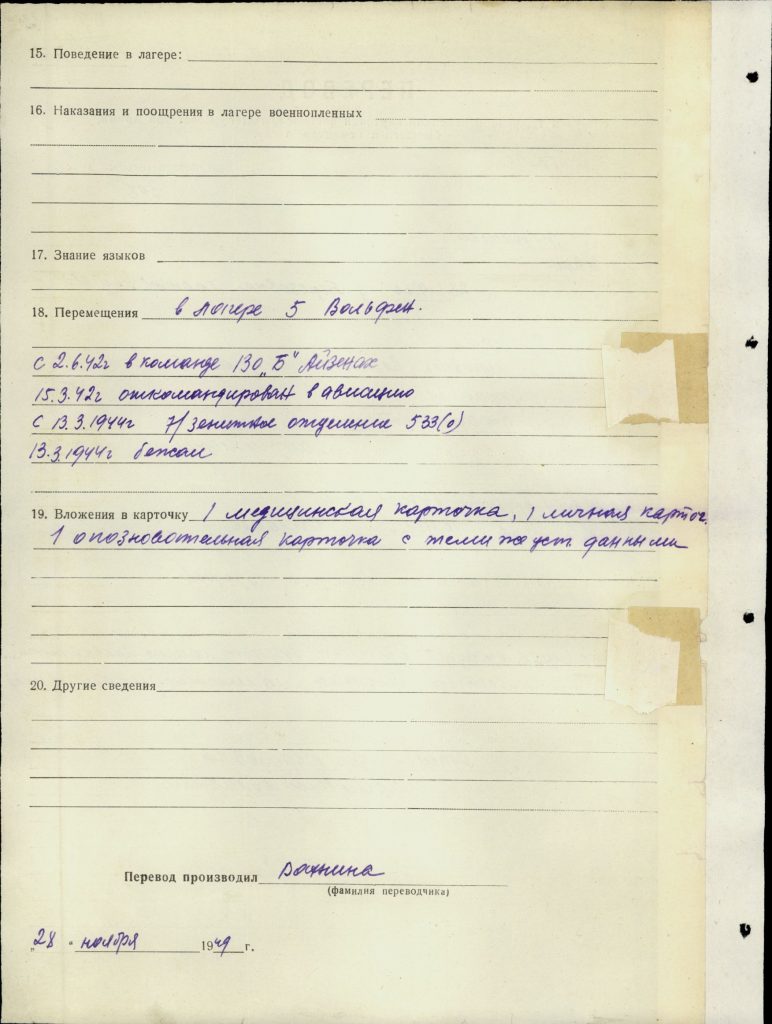 15. Поведение в лагере:
16. Наказания и поощрения в лагере военнопленных
17. Знание языков
18. Перемещения в лагере 5 Вольфен.
с 2.6.42г в команде 130 „Б" Айзенах
15.3.42г откомандирован в авиацию
с 13.3.1944г 7/ зенитное отделение 533(о)
13.3.1944г бежал
19. Вложения в карточку 1 медицинская карточка, 1 личная карточ.
1 опозновательная карточка с теми же уст. данными
20. Другие сведения
Перевод производил
(фамилия переводчика)
„28 " ноября 1949 г.